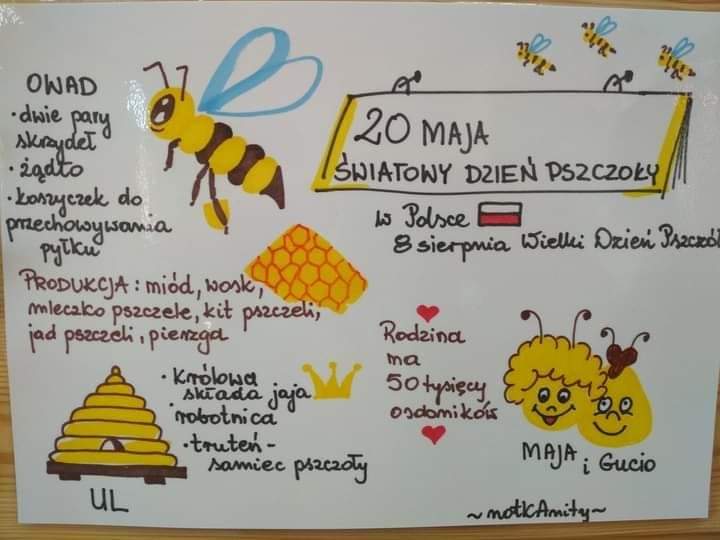 OWAD
• dwie pary
skrzydeł
• żądło
• koszyczek do
przechowywania
pyłku
20 MAJA
ŚWIATOWY DZIEŃ PSZCZOŁY
w Polsce
8 sierpnia Wielki Dzień Pszczół
PRODUKCJA: miód, wosk,
mleczko pszczele, kit pszczeli,
jad pszczeli, pierzga
• Królowa
składa jaja
• robotnica
• truteń -
samiec pszczoły
UL
Rodzina
ma
50 tysięcy
osobników
MAJA i Gucio
~notkAnity~